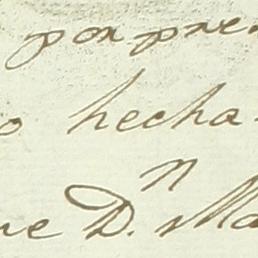 por pre
o hecha
ue D.n Ma